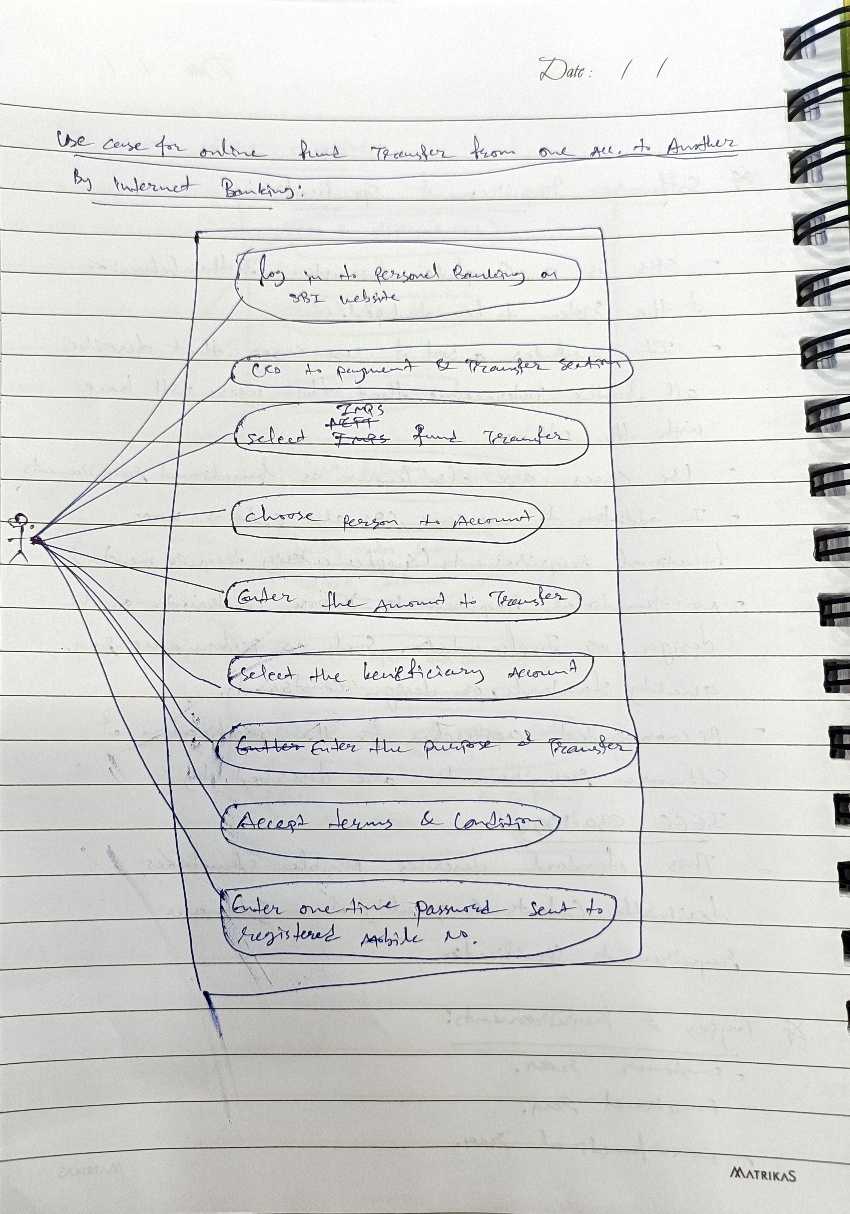 Date : / /
Use case for online fund Transfer from one Acc. to Another
By Internet Banking:
Log in to Personal Banking on
SBI website
Go to payment & Transfer section
IMPS
NEFT
select IMPS fund Transfer
choose Person to Account
Enter the Amount to Transfer
select the beneficiary Account
Enter the purpose of Transfer
Accept terms & Condition
Enter one time password sent to
registered Mobile no.
MATRIKAS